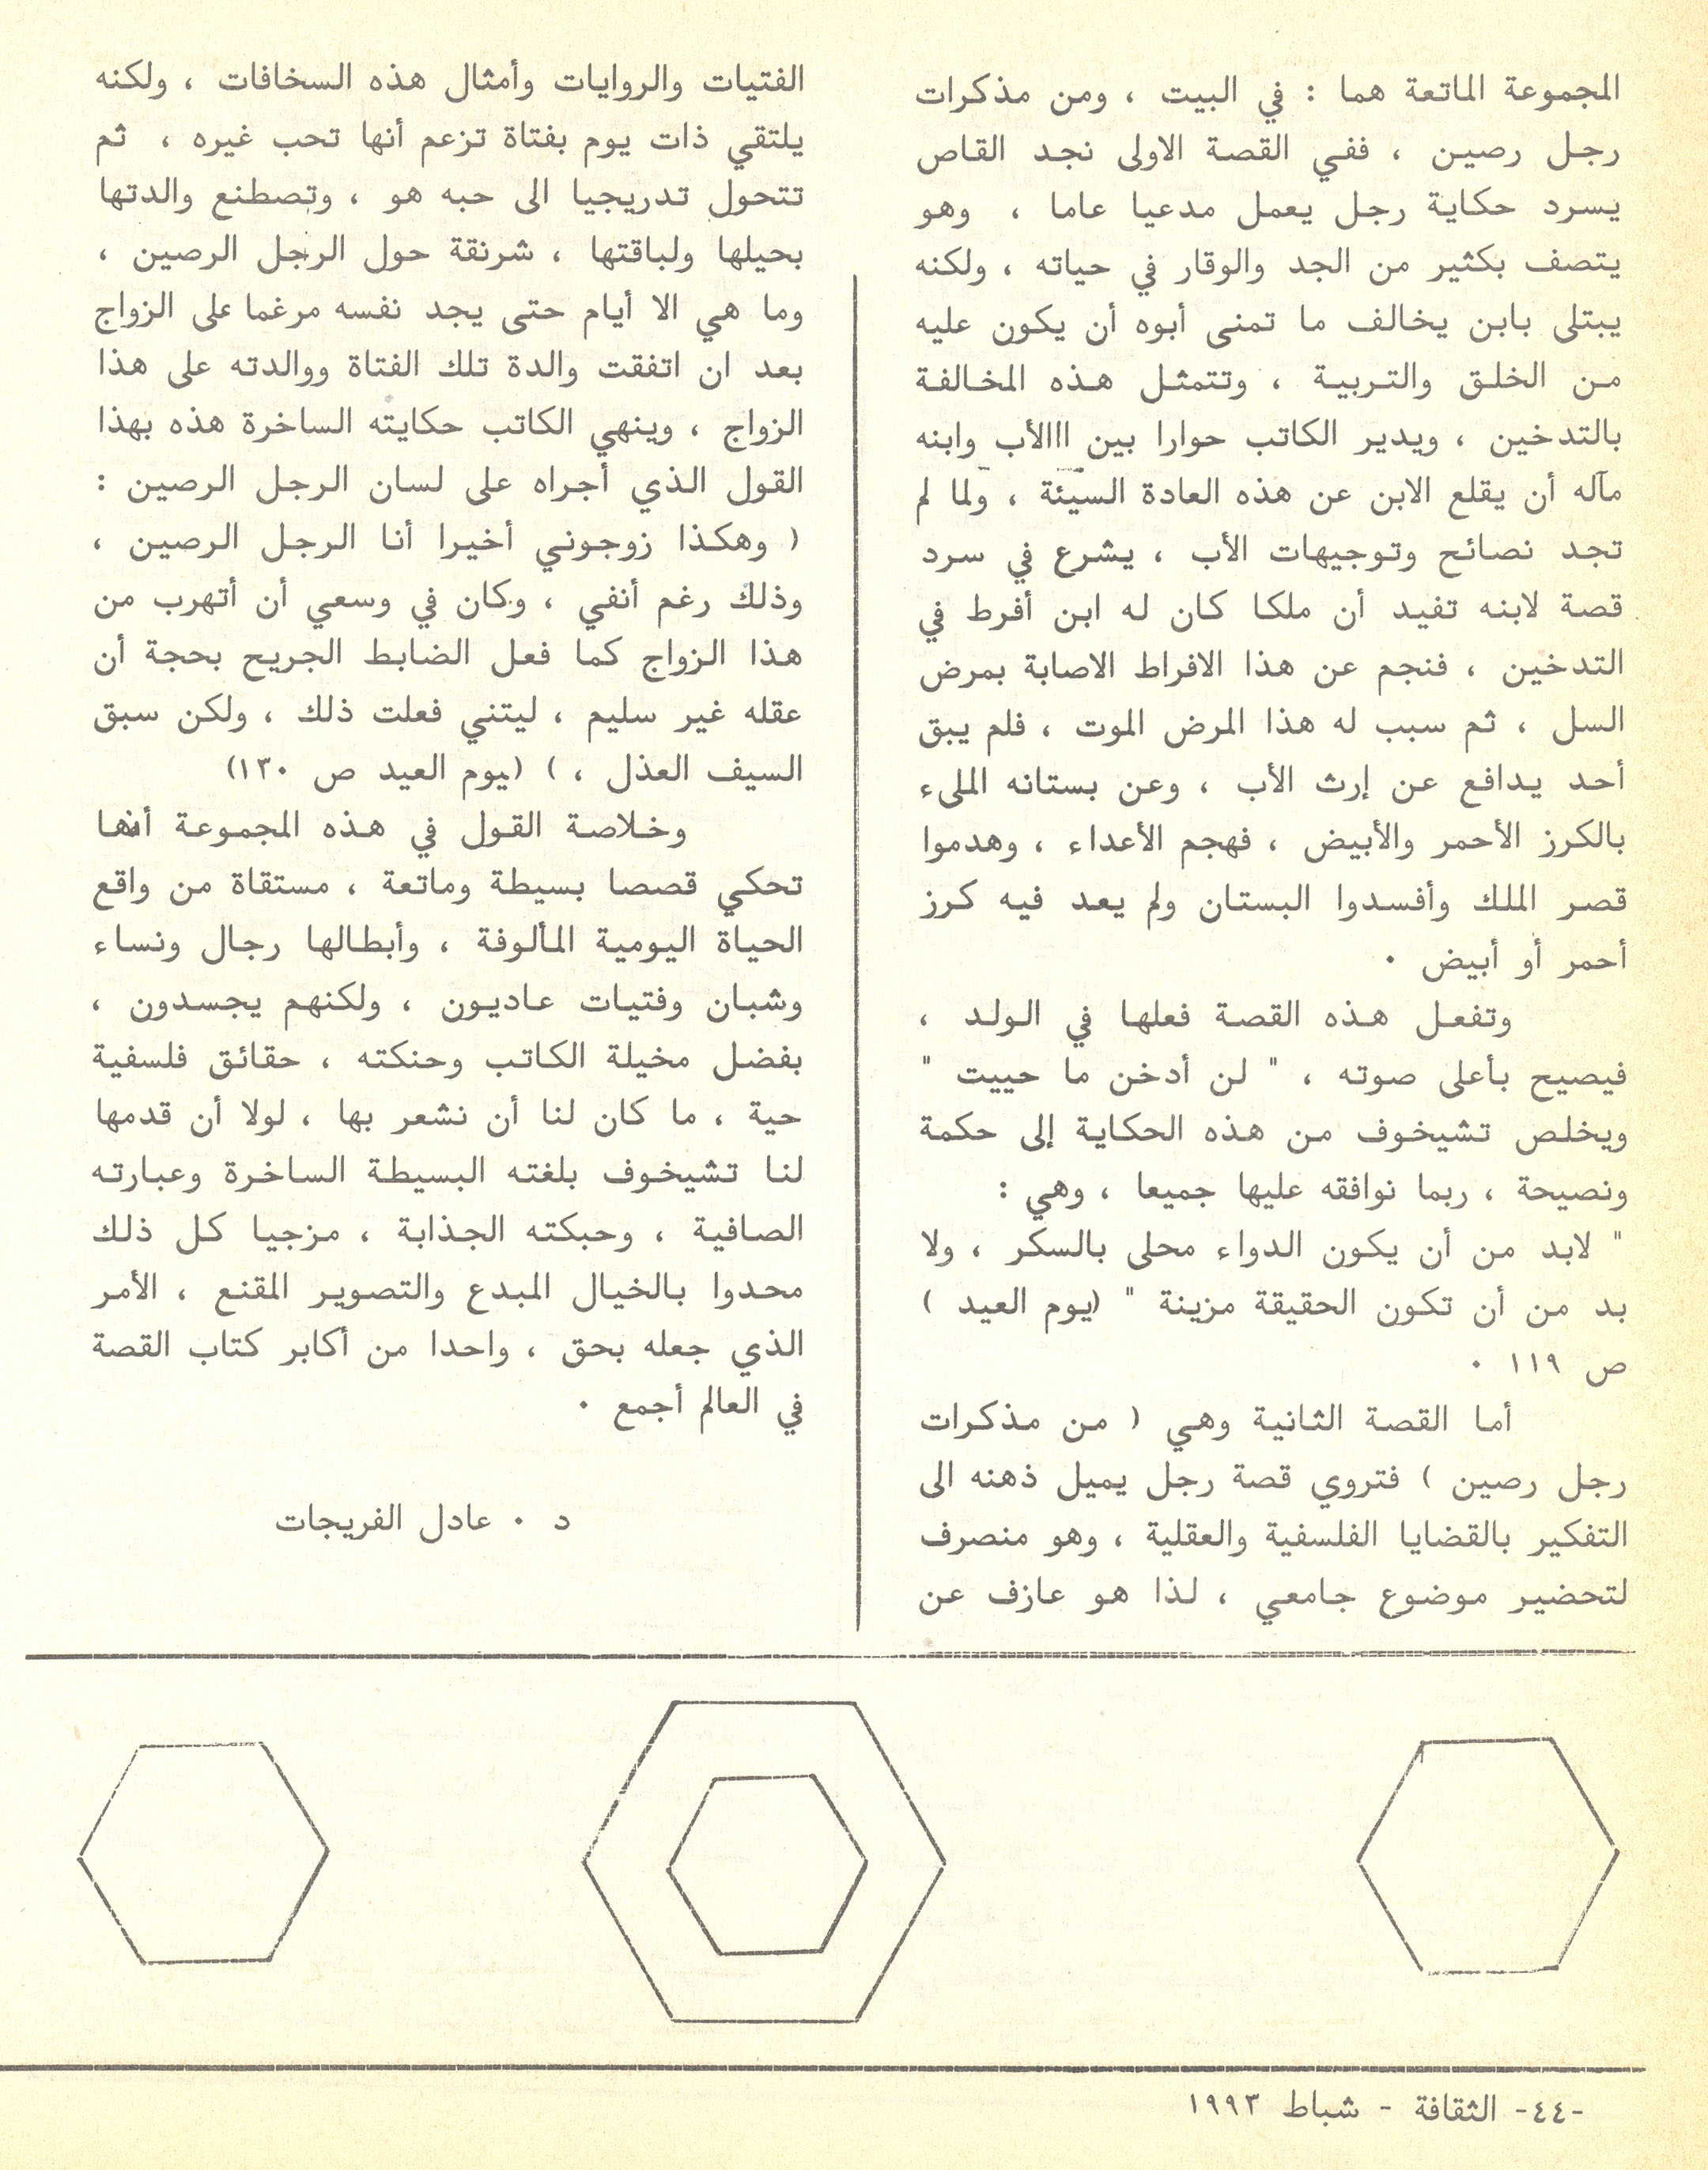 المجموعة الماتعة هما : في البيت ، ومن مذكرات
رجل رصين ، ففي القصة الاولى نجد القاص
يسرد حكاية رجل يعمل مدعيا عاما ، وهو
يتصف بكثير من الجد والوقار في حياته ، ولكنه
يبتلى بابن يخالف ما تمنى أبوه أن يكون عليه
من الخلق والتربية ، وتتمثل هذه المخالفة
بالتدخين ، ويدير الكاتب حوارا بين االالأب وابنه
مآله أن يقلع الابن عن هذه العادة السيئة ، ولما لم
تجد نصائح وتوجيهات الأب ، يشرع في سرد
قصة لابنه تفيد أن ملكا كان له ابن أفرط في
التدخين ، فنجم عن هذا الافراط الاصابة بمرض
السل ، ثم سبب له هذا المرض الموت ، فلم يبق
أحد يدافع عن إرث الأب ، وعن بستانه المليء
بالكرز الأحمر والأبيض ، فهجم الأعداء ، وهدموا
قصر الملك وأفسدوا البستان ولم يعد فيه كرز
أحمر أو أبيض ٠
وتفعل هذه القصة فعلها في الولد ،
فيصيح بأعلى صوته ، " لن أدخن ما حييت "
ويخلص تشيخوف من هذه الحكاية إلى حكمة
ونصيحة ، ربما نوافقه عليها جميعا ، وهي :
" لابد من أن يكون الدواء محلى بالسكر ، ولا
بد من أن تكون الحقيقة مزينة " (يوم العيد )
ص ١١٩ ٠
أما القصة الثانية وهي ( من مذكرات
رجل رصين ) فتروي قصة رجل يميل ذهنه الى
التفكير بالقضايا الفلسفية والعقلية ، وهو منصرف
لتحضير موضوع جامعي ، لذا هو عازف عن
الفتيات والروايات وأمثال هذه السخافات ، ولكنه
يلتقي ذات يوم بفتاة تزعم أنها تحب غيره ، ثم
تتحول تدريجيا الى حبه هو ، وتصطنع والدتها
بحيلها ولباقتها ، شرنقة حول الرجل الرصين ،
وما هي الا أيام حتى يجد نفسه مرغما على الزواج
بعد ان اتفقت والدة تلك الفتاة ووالدته على هذا
الزواج ، وينهي الكاتب حكايته الساخرة هذه بهذا
القول الذي أجراه على لسان الرجل الرصين :
( وهكذا زوجوني أخيرا أنا الرجل الرصين ،
وذلك رغم أنفي ، وكان في وسعي أن أتهرب من
هذا الزواج كما فعل الضابط الجريح بحجة أن
عقله غير سليم ، ليتني فعلت ذلك ، ولكن سبق
السيف العذل ، ) (يوم العيد ص ١٣٠)
وخلاصة القول في هذه المجموعة أنها
تحكي قصصا بسيطة وماتعة ، مستقاة من واقع
الحياة اليومية المألوفة ، وأبطالها رجال ونساء
وشبان وفتيات عاديون ، ولكنهم يجسدون ،
بفضل مخيلة الكاتب وحنكته ، حقائق فلسفية
حية ، ما كان لنا أن نشعر بها ، لولا أن قدمها
لنا تشيخوف بلغته البسيطة الساخرة وعبارته
الصافية ، وحبكته الجذابة ، مزجيا كل ذلك
محدوا بالخيال المبدع والتصوير المقنع ، الأمر
الذي جعله بحق ، واحدا من أكابر كتاب القصة
في العالم أجمع ٠
د ٠ عادل الفريجات
-٤٤- الثقافة - شباط ١٩٩٣